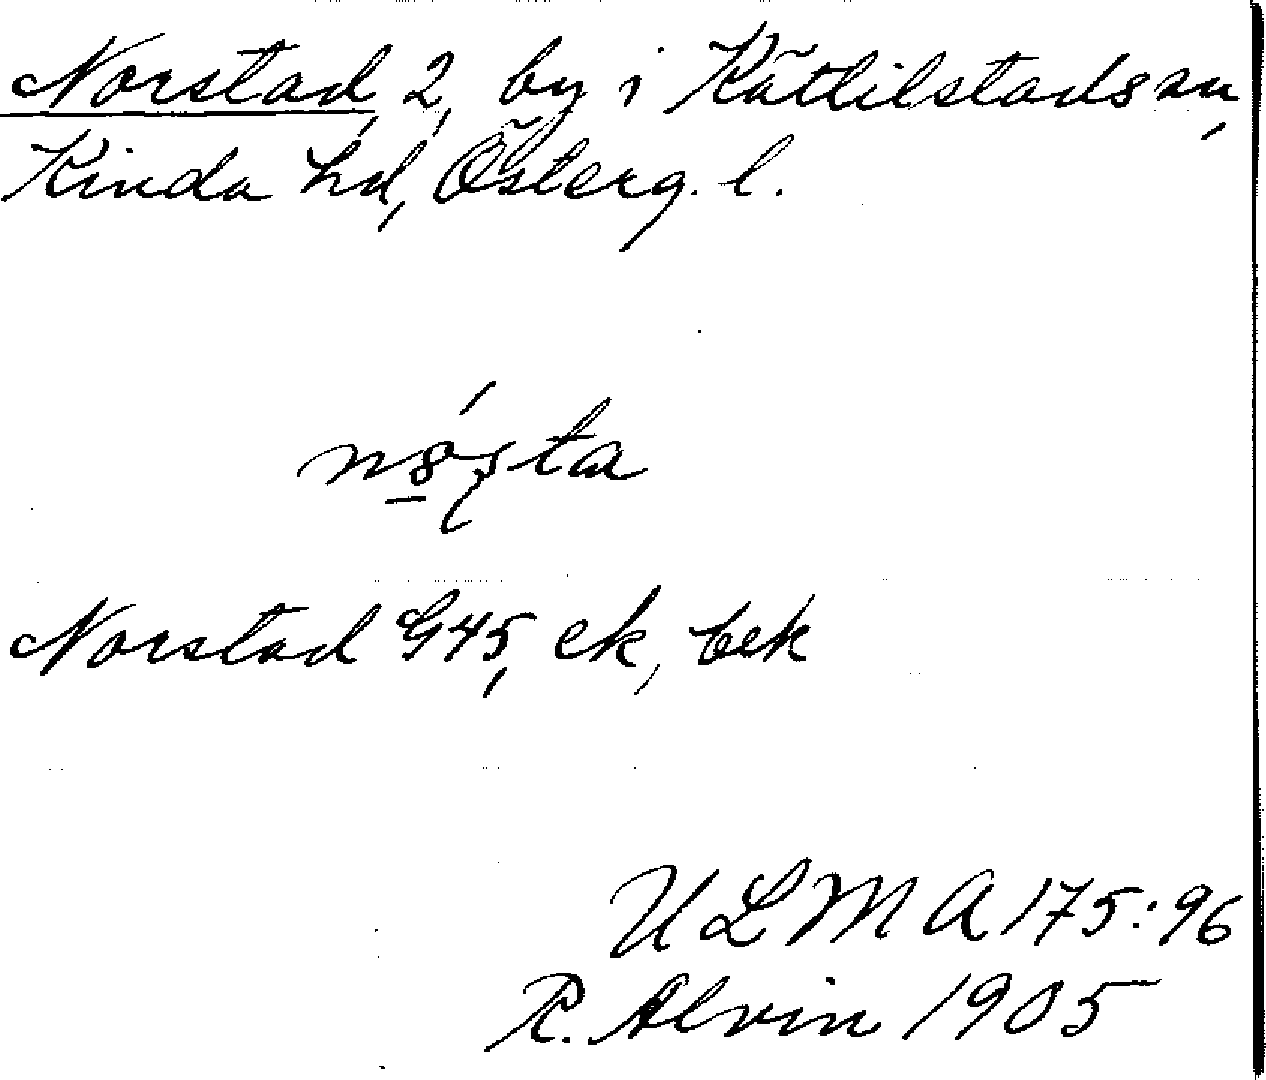 Norstad 2, by i Kättilstads sn,
Kinda hd, Österg. l.
Norstad G45, ek, bek
ULMA 175:96
R. Alvin 1905